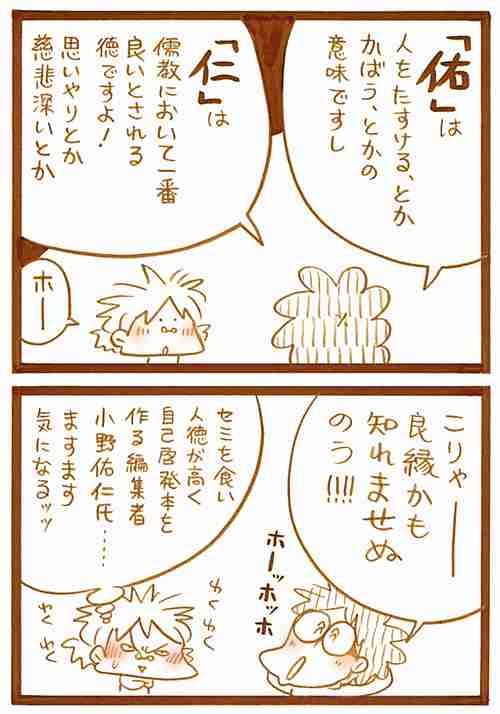 「佑」は
人をたすける、とか
かばう、とかの
意味ですし
「仁」は
儒教において一番
良いとされる
徳ですよ!
思いやりとか
慈悲深いとか
ホー
こりゃー
良縁かも
知れませぬ
のう!!!!
ホーッホッホ
セミを食い
人徳が高く
自己啓発本を
作る編集者
小野佑仁氏……
ますます
気になるッッ
わくわく
わくわく